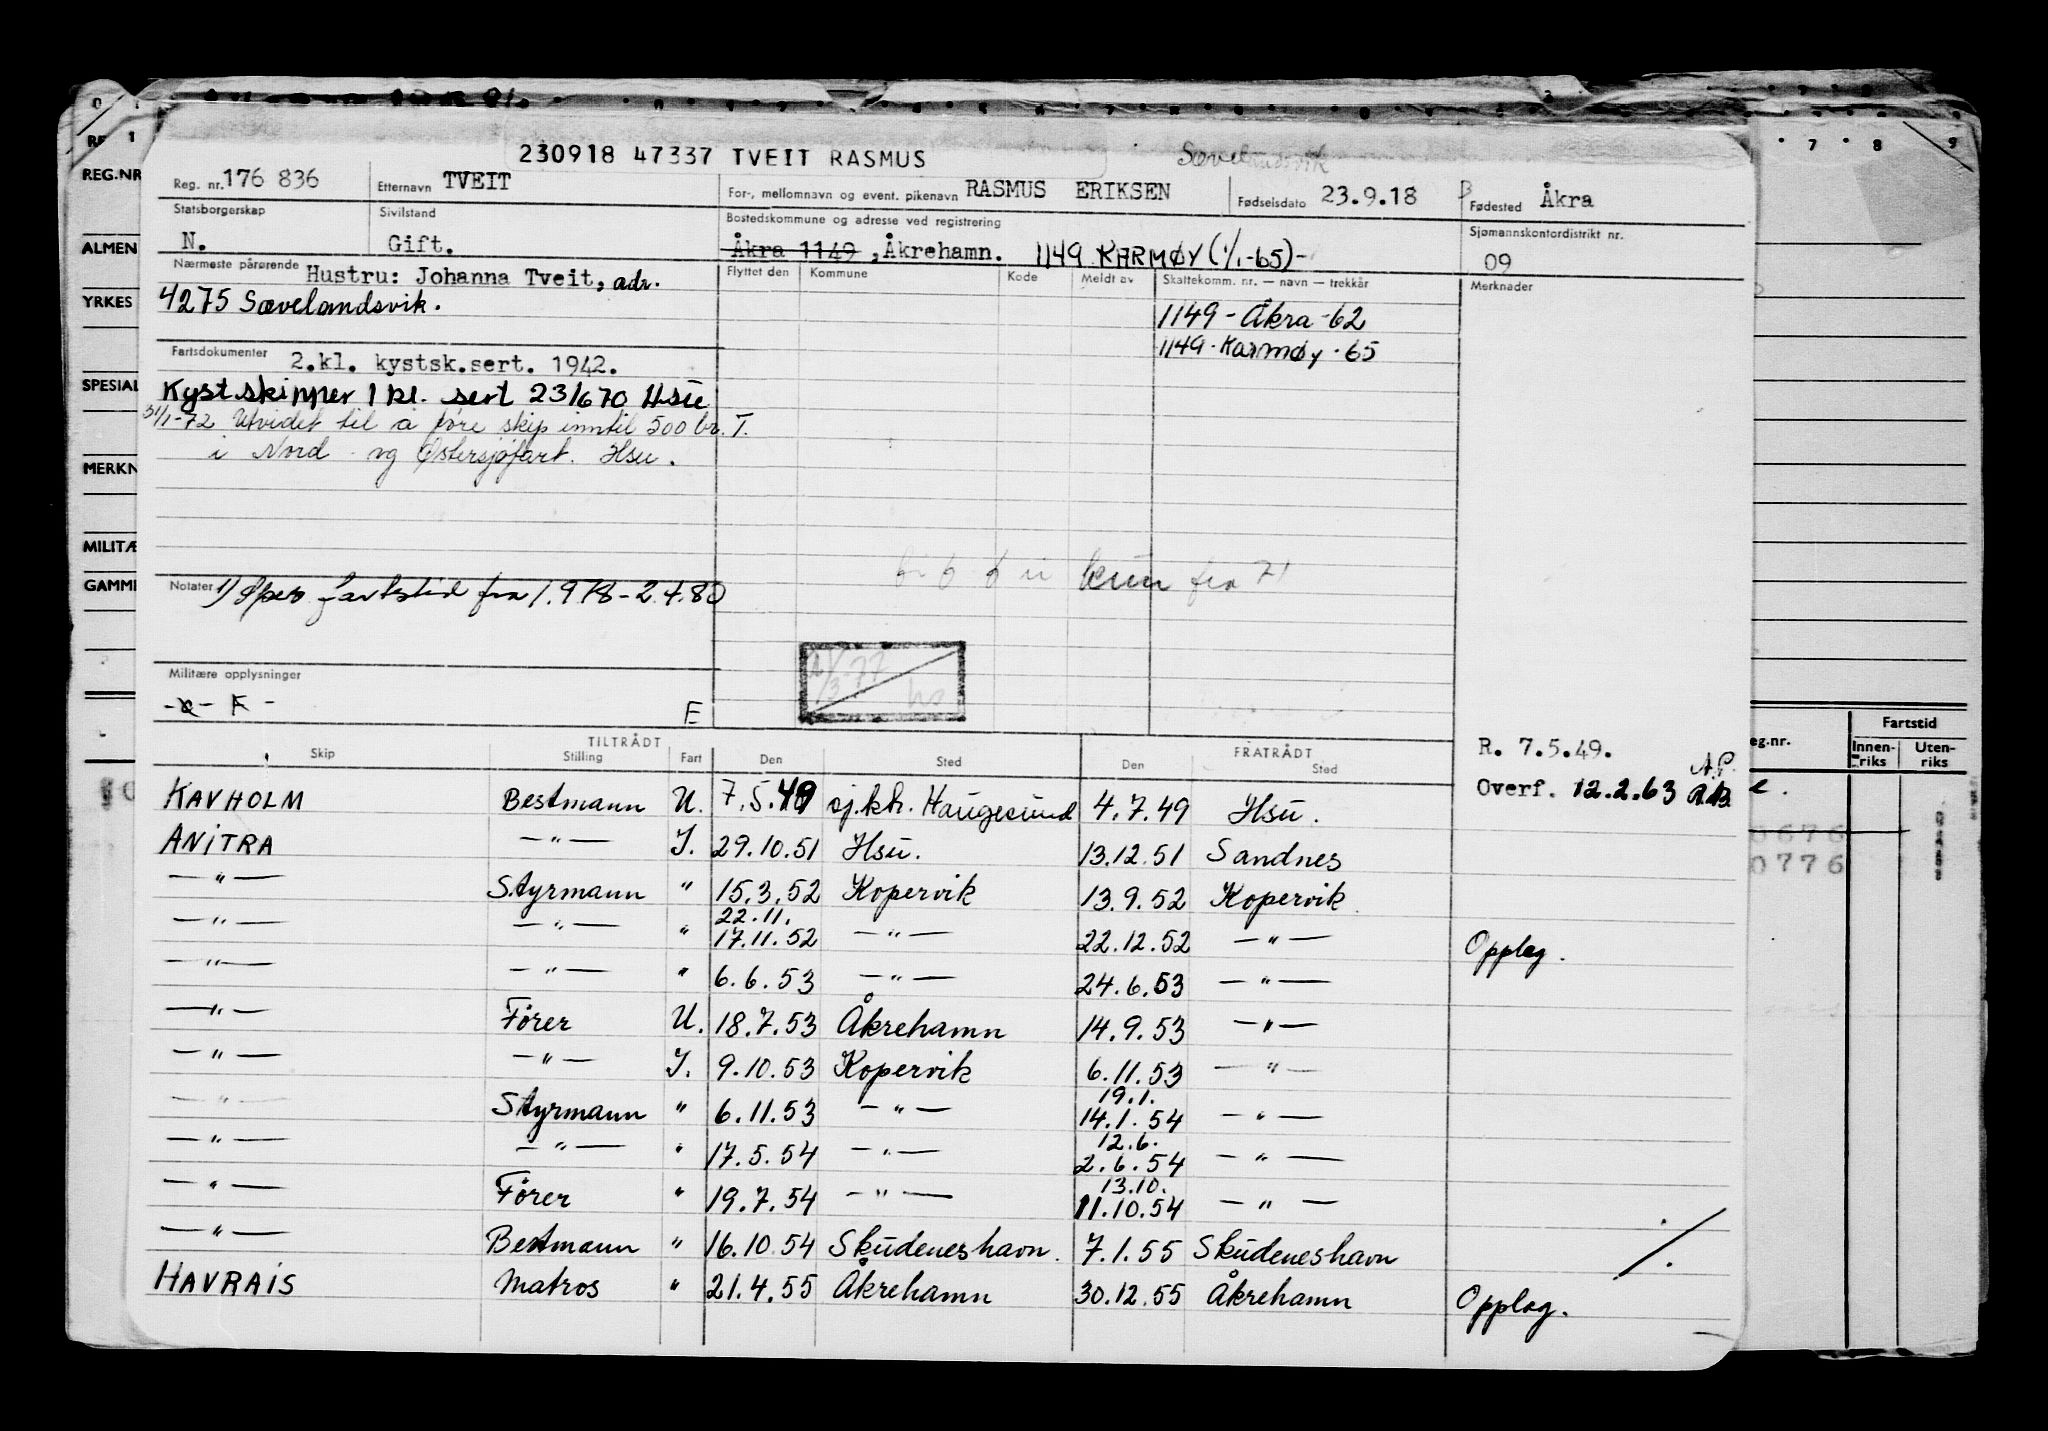 230918 47337 TVEIT RASMUS
Reg. nr. 176 836 Etternavn TVEIT For-, mellomnavn og event. pikenavn RASMUS ERIKSEN Fødselsdato 23.9.18 Fødested Åkra
Statsborgerskap N. Sivilstand Gift. Bostedskommune og adresse ved registrering Åkra 1149 , Åkrehamn. 1149 KARMØY (1/1-65)- Sjømannskontordistrikt nr. 09
Nærmeste pårørende Hustru: Johanna Tveit, adr. Flyttet den Kommune Kode Meldt av Skattekomm. nr. — navn — trekkår Merknader
4275 Sævelandsvik. 1149 - Åkra -62
1149 - Karmøy - 65
Fartsdokumenter 2.kl. kystsk.sert. 1942.
Kystskipper 1 kl. sert 23/6 70 Hsu
31/1-72 Utvidet til å føre skip inntil 500 br. T.
i Nord og Østersjøfart. Hsu.
kun fra 71
Notater 1) Oper fartstid fra 1.9.78 - 2.4.80
Militære opplysninger
E
TILTRÅDT FRATRÅDT R. 7.5.49.
Skip Stilling Fart Den Sted Den Sted
Overf. 12.2.63
KAVHOLM Bestmann U. 7.5.49 sj.ktr. Haugesund 4.7.49 Hsu.
ANITRA — " — I. 29.10.51 Hsu. 13.12.51 Sandnes
— " — Styrmann " 15.3.52 Kopervik 13.9.52 Kopervik
22.11.
— " — — " — " 17.11.52 — " — 22.12.52 — " — Opplag.
— " — — " — " 6.6.53 — " — 24.6.53 — " —
— " — Fører U. 18.7.53 Åkrehamn 14.9.53 — " —
— " — — " — I. 9.10.53 Kopervik 6.11.53 — " —
19.1.
— " — Styrmann " 6.11.53 — " — 14.1.54 — " —
12.6.
— " — — " — " 17.5.54 — " — 2.6.54 — " —
13.10.
— " — Fører " 19.7.54 — " — 11.10.54 — " —
— " — Bestmann " 16.10.54 Skudeneshavn. 7.1.55 Skudeneshavn
HAVRAIS Matros " 21.4.55 Åkrehamn 30.12.55 Åkrehamn Opplag.
REG.NR
ALMEN
YRKES
SPESIAL
MERKN
MILITÆ
GAMME
7 8 9
eg.nr. Fartstid
Innen-riks Uten-riks
0676
0776